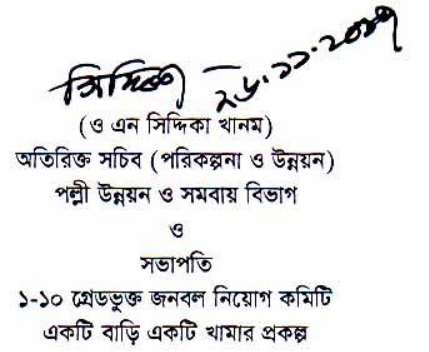 সিদ্দিকা
২৬.১১.২০১৭
(ও এন সিদ্দিকা খানম)
অতিরিক্ত সচিব (পরিকল্পনা ও উন্নয়ন)
পল্লী উন্নয়ন ও সমবায় বিভাগ
ও
সভাপতি
১-১০ গ্রেডভুক্ত জনবল নিয়োগ কমিটি
একটি বাড়ি একটি খামার প্রকল্প